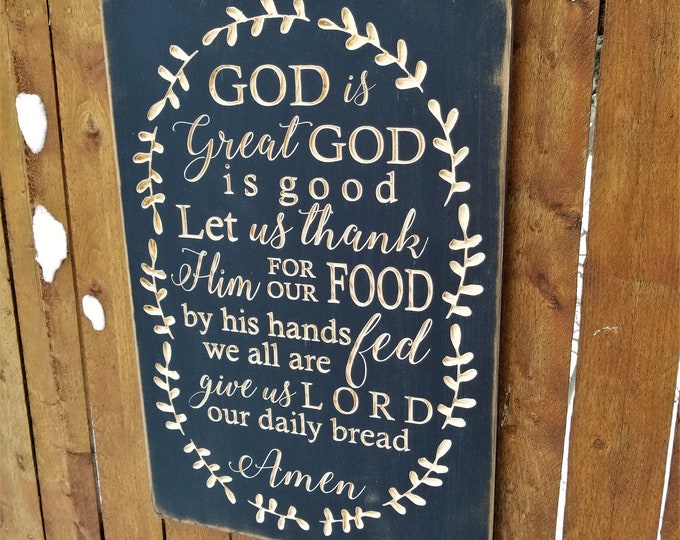 GOD is
Great GOD
is good
Let us thank
Him FOR OUR FOOD
by his hands
we all are fed
give us LORD
our daily bread
Amen